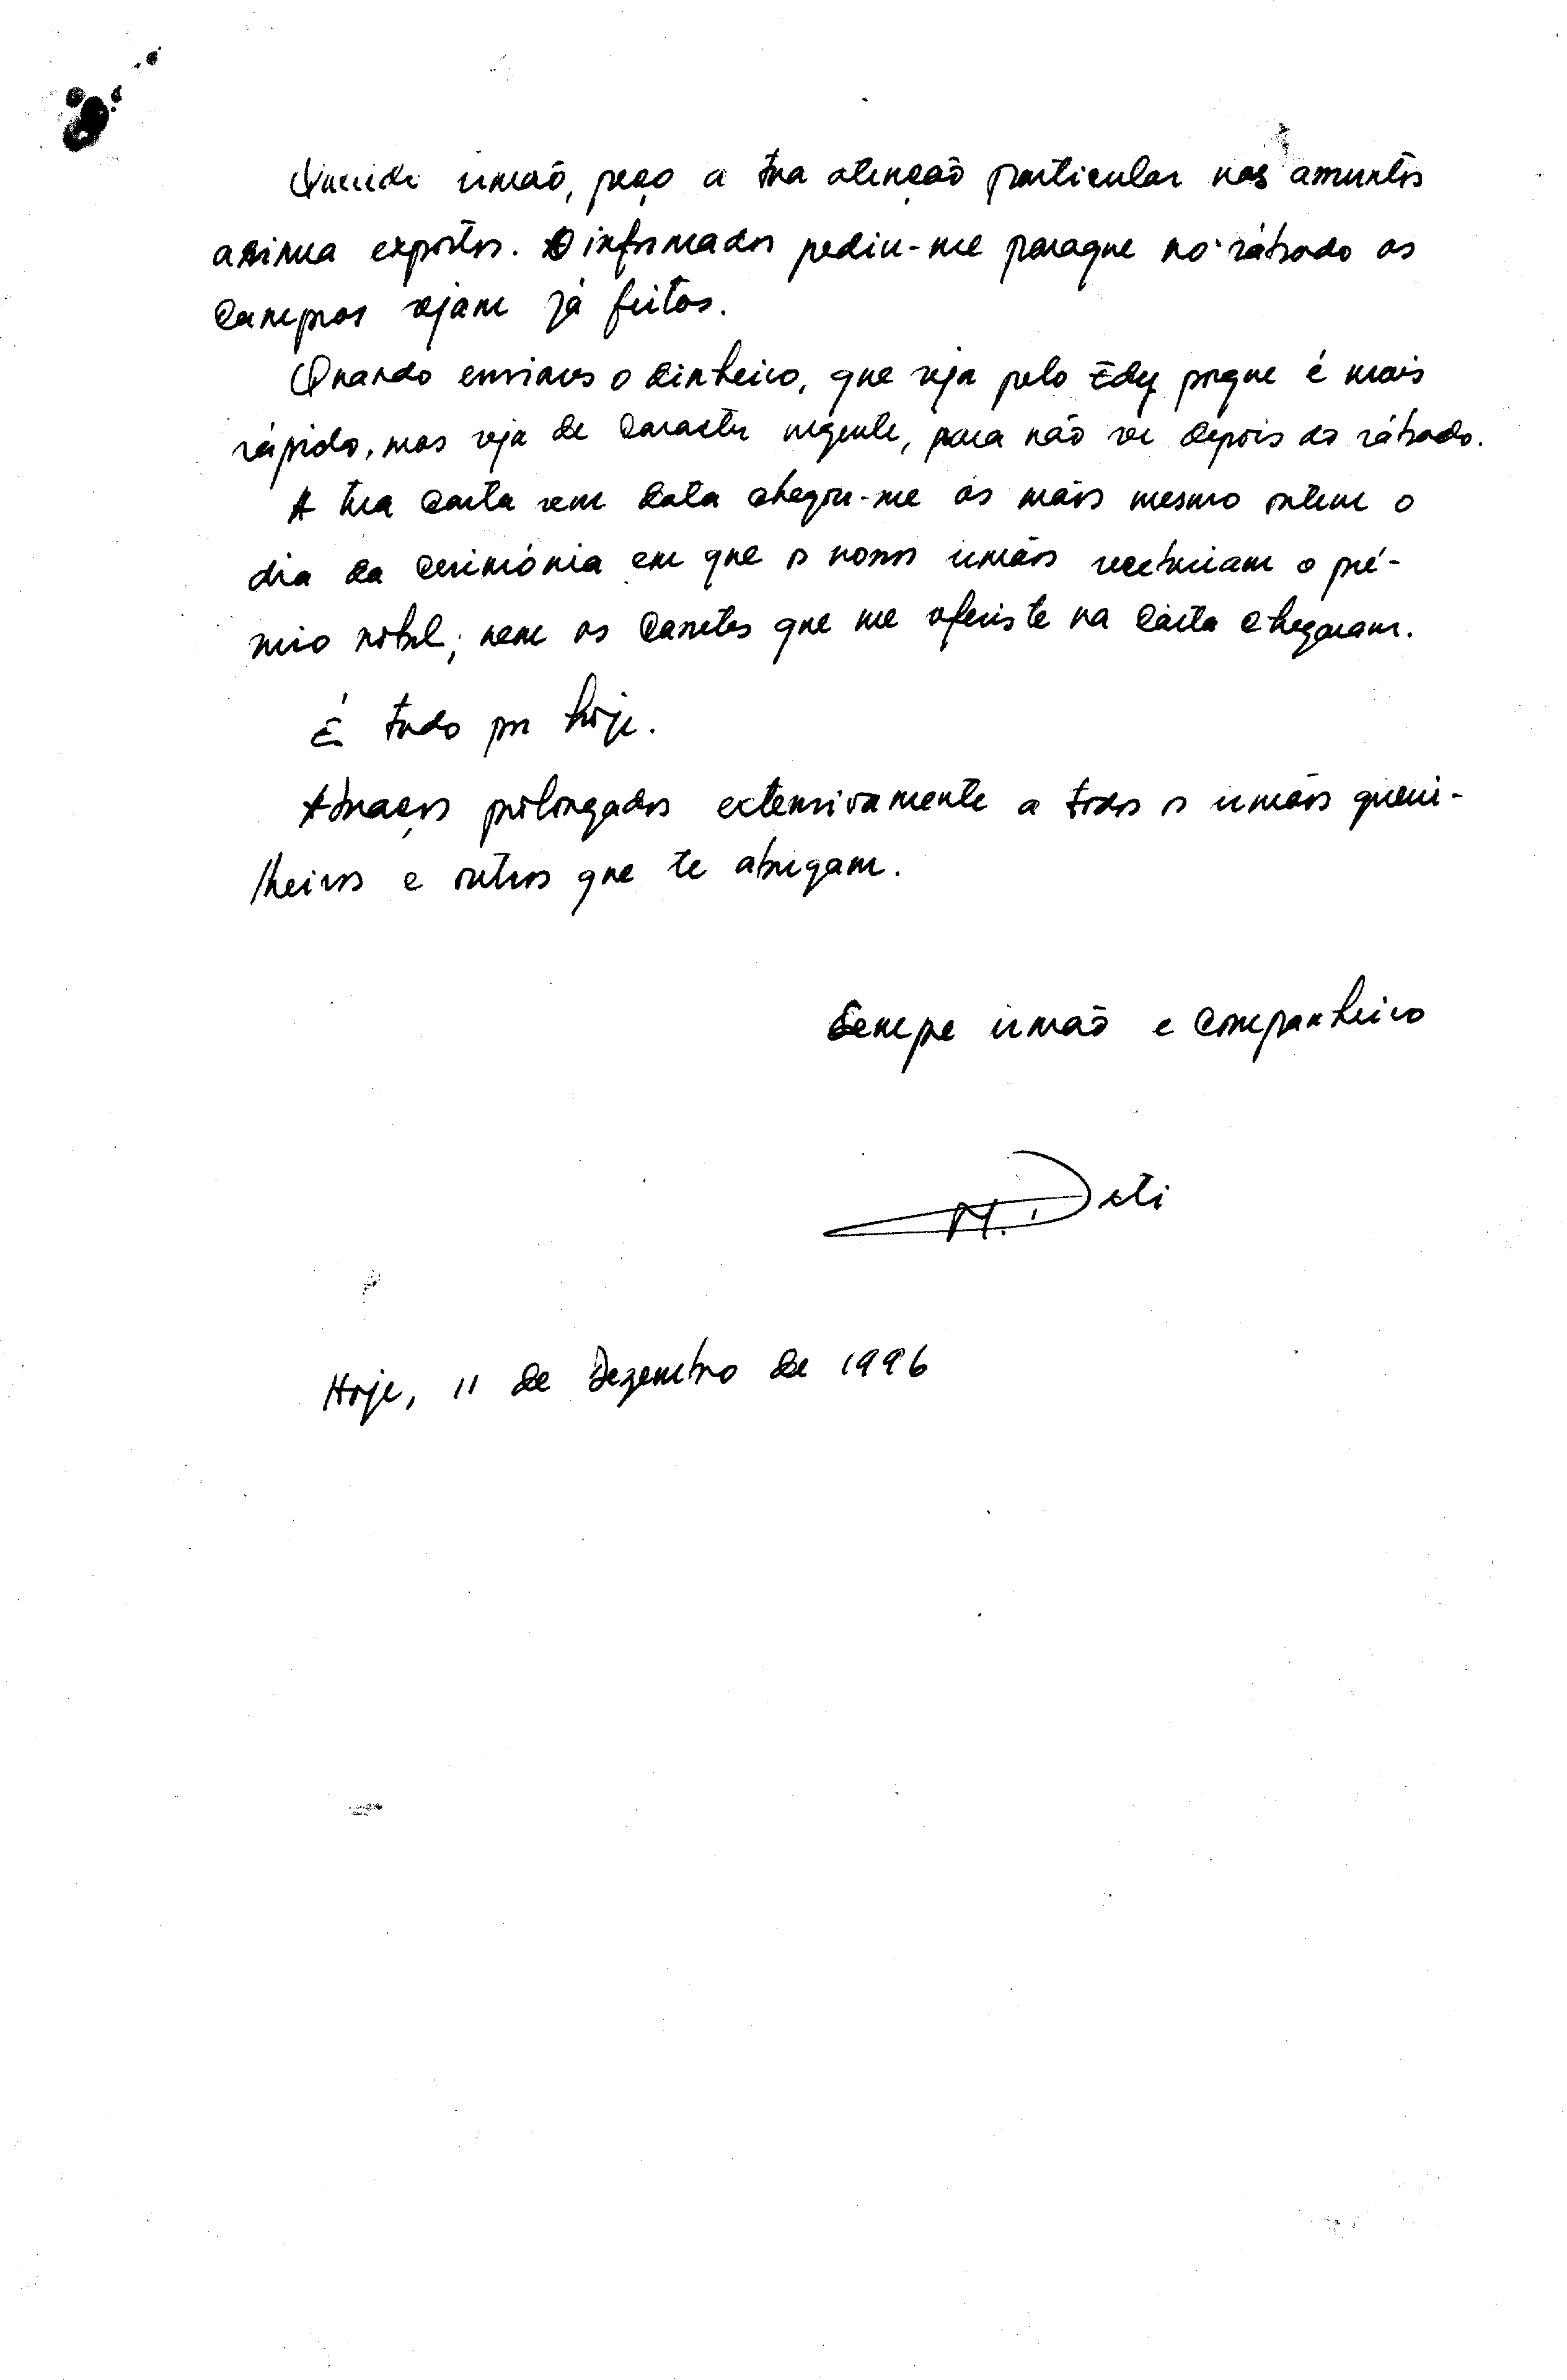 Querido irmão, peço a tua atenção particular nos assuntos
acima expostos. O informador pediu-me paraque no sábado as
compras sejam já feitas.
Quando enviares o dinheiro, que seja pelo Edy porque é mais
rápido, mas seja de caracter urgente, para não ser depois do sábado.
A tua carta sem data chegou-me às mãos mesmo ontem o
dia da cerimónia em que os nossos irmãos receberiam o pré-
mio nobel; nem as cassetes que me oferiste na carta chegaram.
É tudo por hoje.
Abraços prolongados extensivamente a todos os irmãos guerri-
lheiros e outros que te abrigam.
Sempre irmão e companheiro
M. Deti
Hoje, 11 de Dezembro de 1996